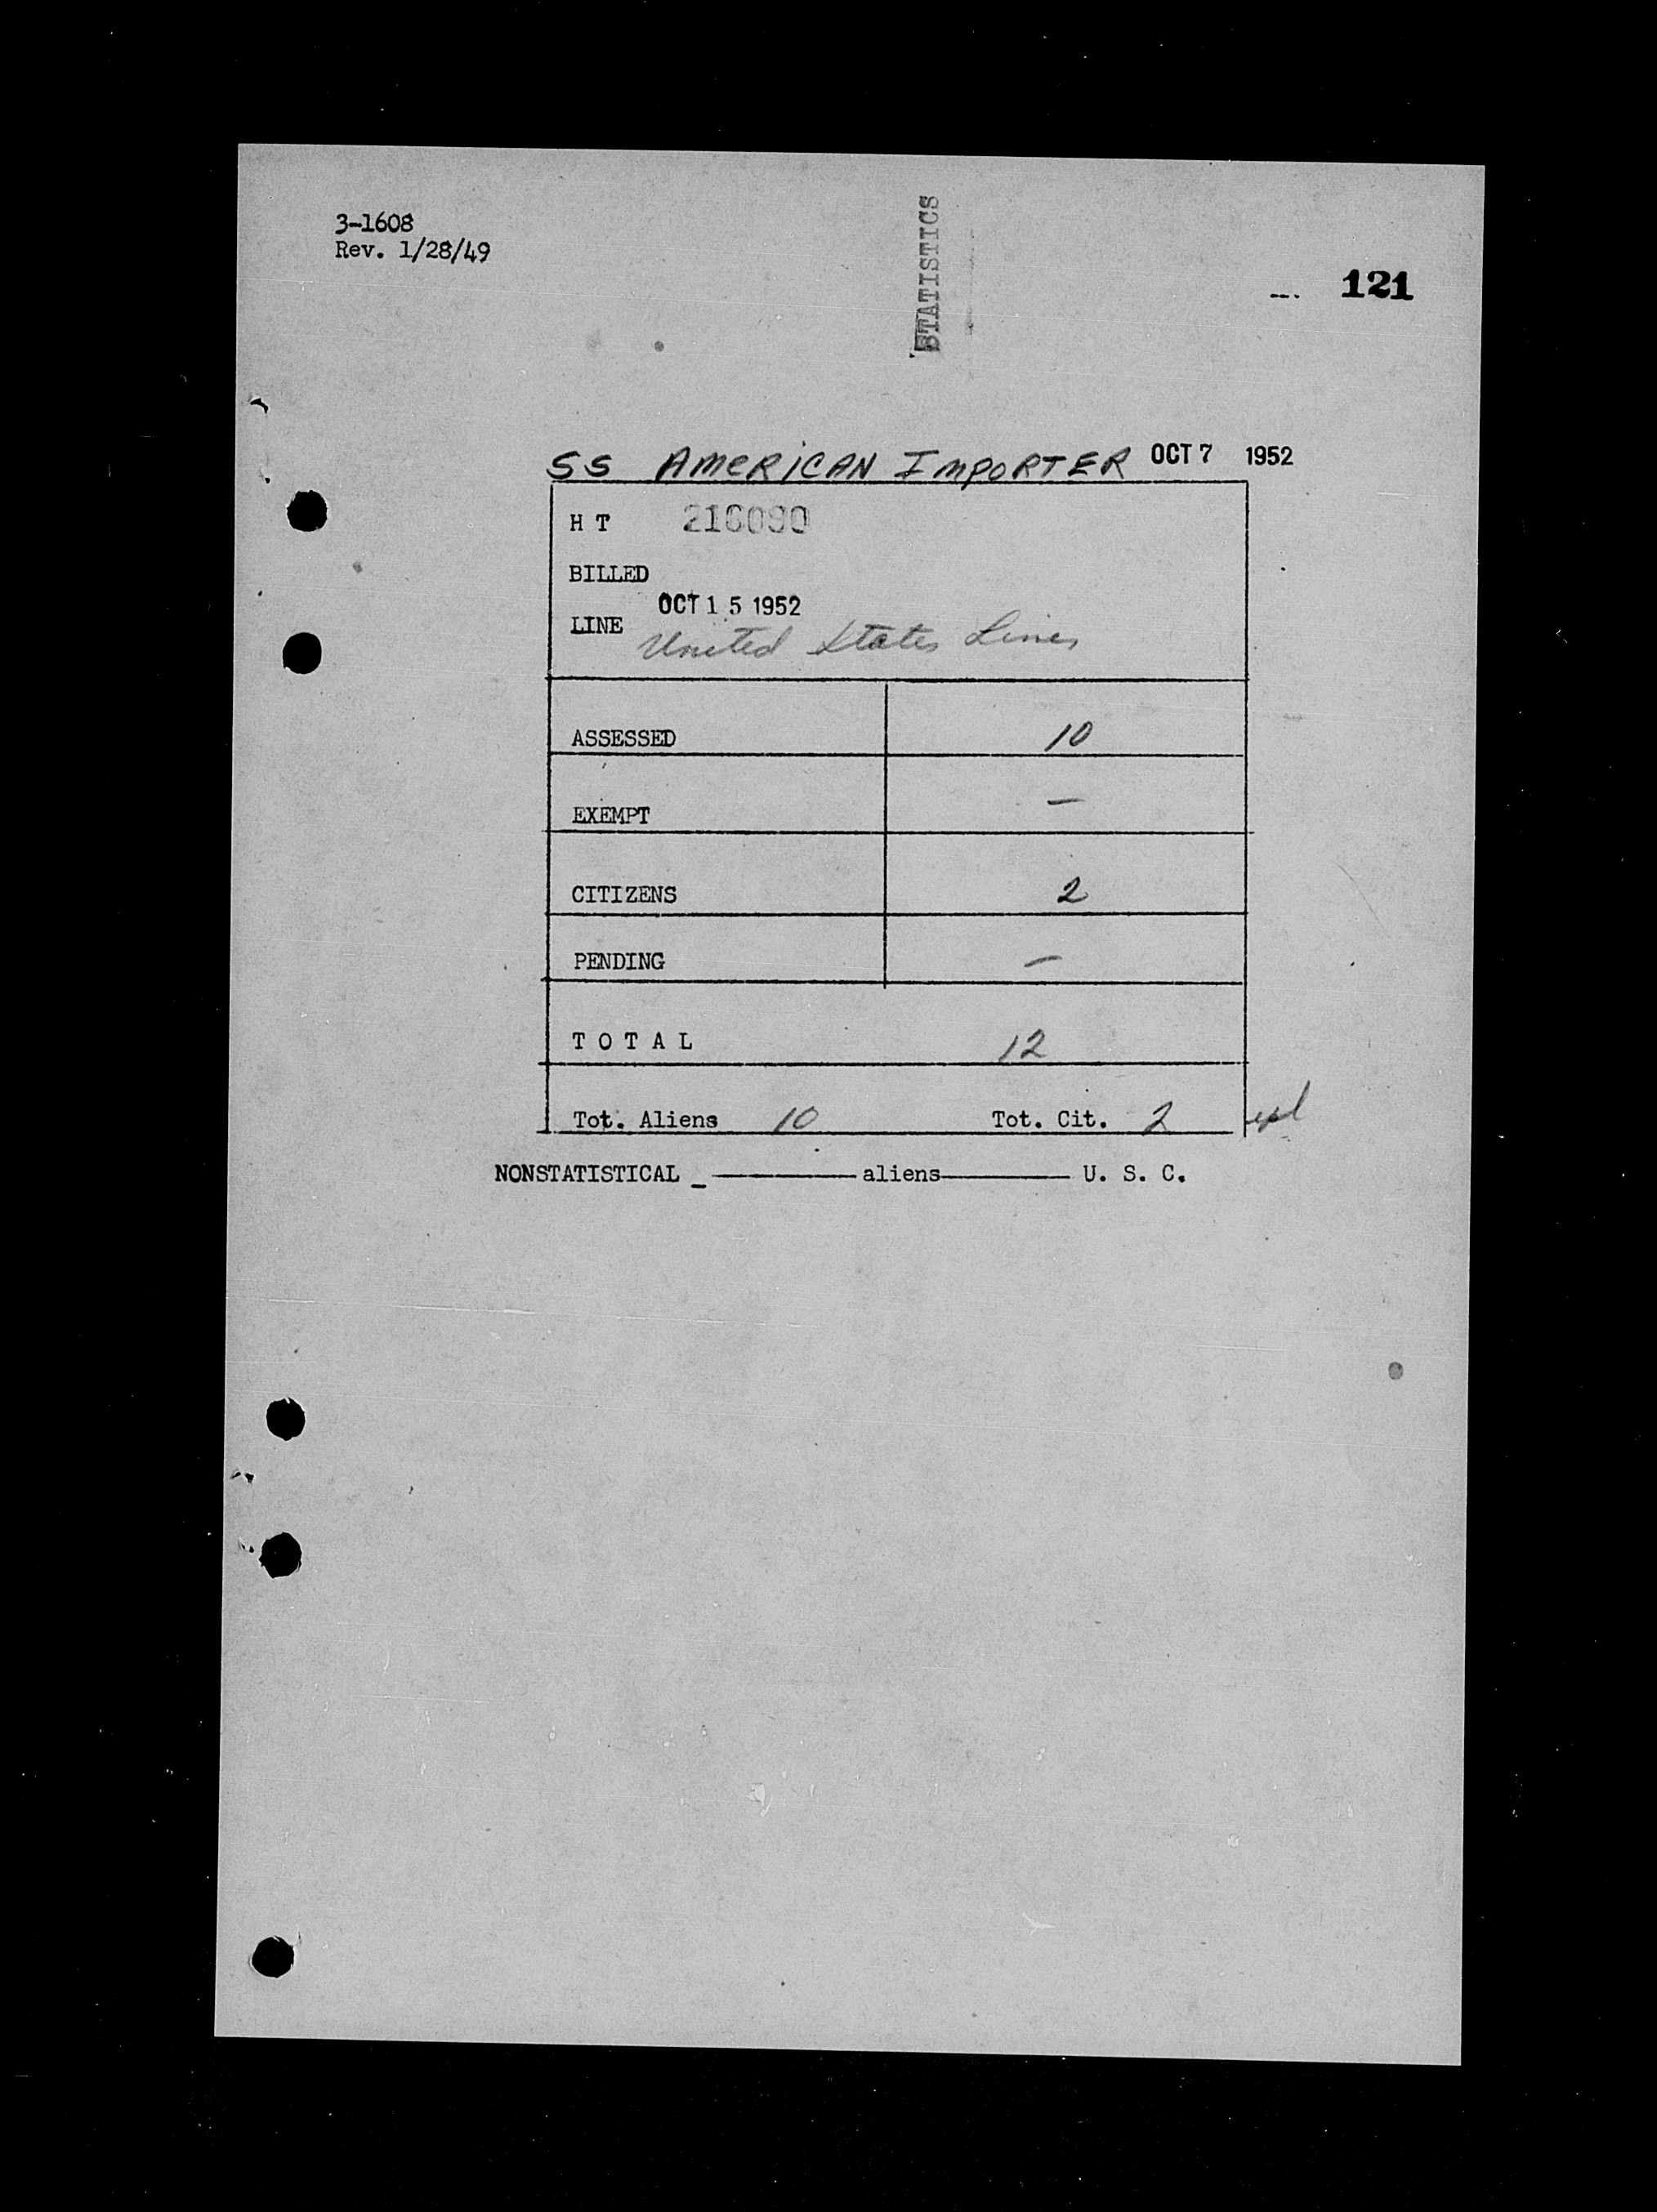 3-1608
Rev. 1/28/49
STATISTICS
121
SS AMERICAN IMPORTER OCT 7 1952
H T
BILLED
OCT 15 1952
LINE United States Lines
ASSESSED 10
EXEMPT —
CITIZENS 2
PENDING —
T O T A L 12
Tot. Aliens 10 Tot. Cit. 2
NONSTATISTICAL _ ———— aliens ———— U. S. C.